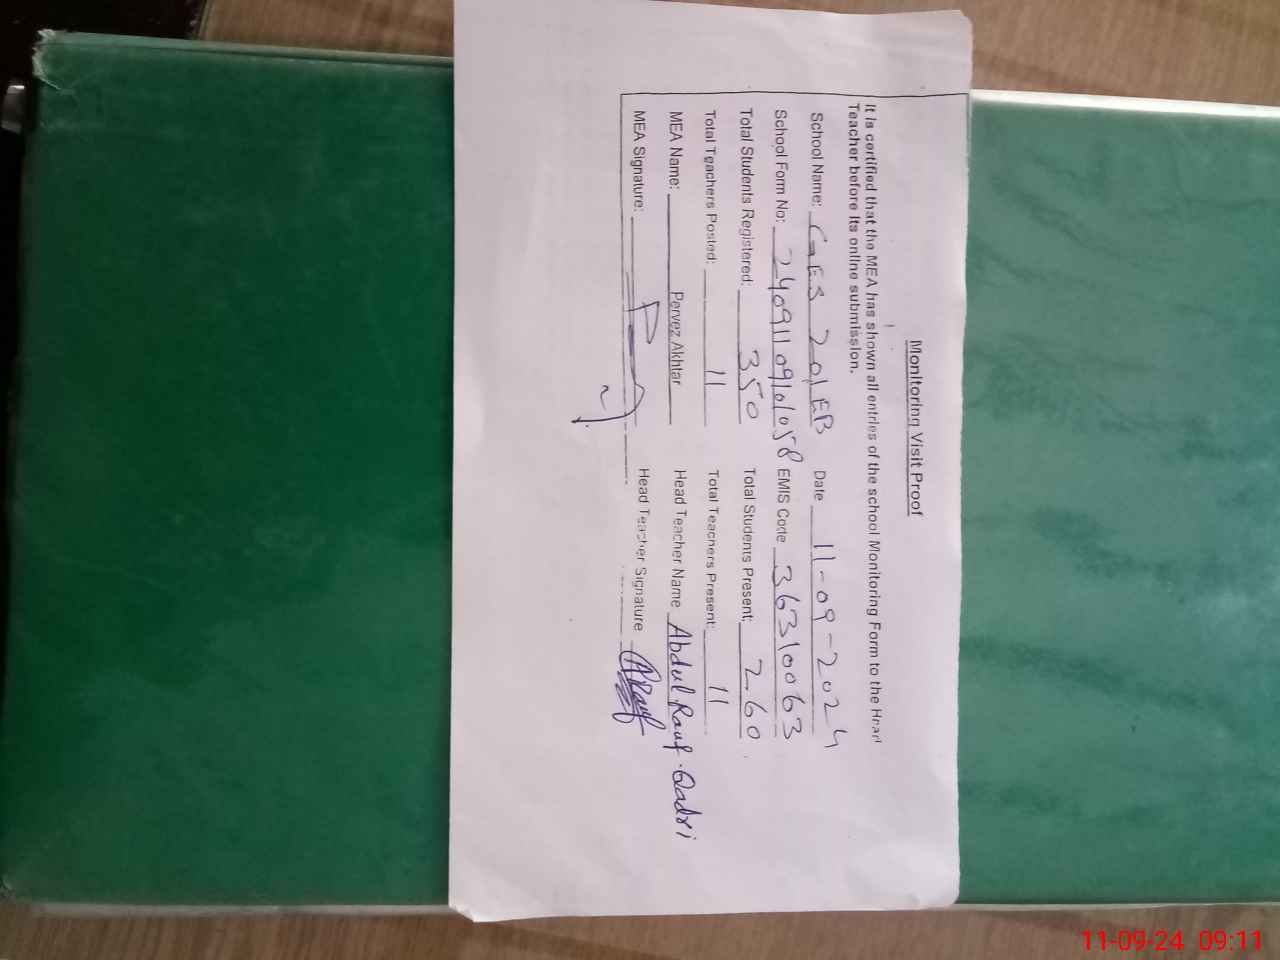 Monitoring Visit Proof
It is certified that the MEA has shown all entries of the school Monitoring Form to the Head
Teacher before its online submission.
School Name: GES 201EB Date 11-09-2024
School Form No: 24091109101058 EMIS Code 36310063
Total Students Registered: 350 Total Students Present: 260
Total Teachers Posted: 11 Total Teachers Present: 11
MEA Name: Pervez Akhtar Head Teacher Name Abdul Rauf Qadri
MEA Signature: Head Teacher Signature ARauf
11-09-24 09:11